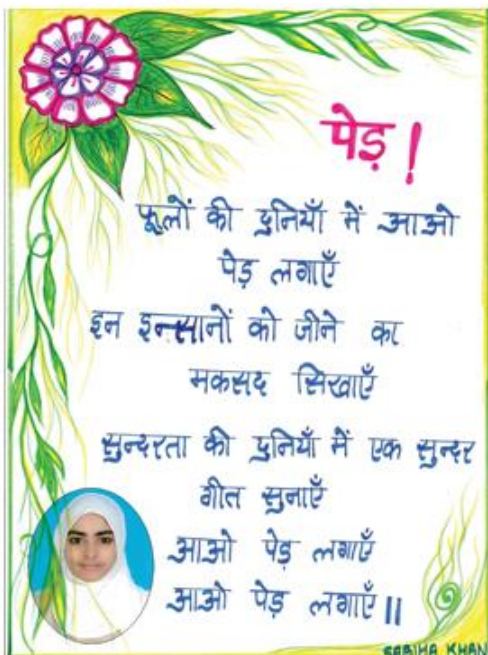 पेड़ !
फूलों की दुनियाँ में आओ
पेड़ लगाएँ
इन इन्सानों को जीने का
मकसद सिखाएँ
सुन्दरता की दुनियाँ में एक सुन्दर
गीत सुनाएँ
आओ पेड़ लगाएँ
आओ पेड़ लगाएँ ॥
SABIHA KHAN